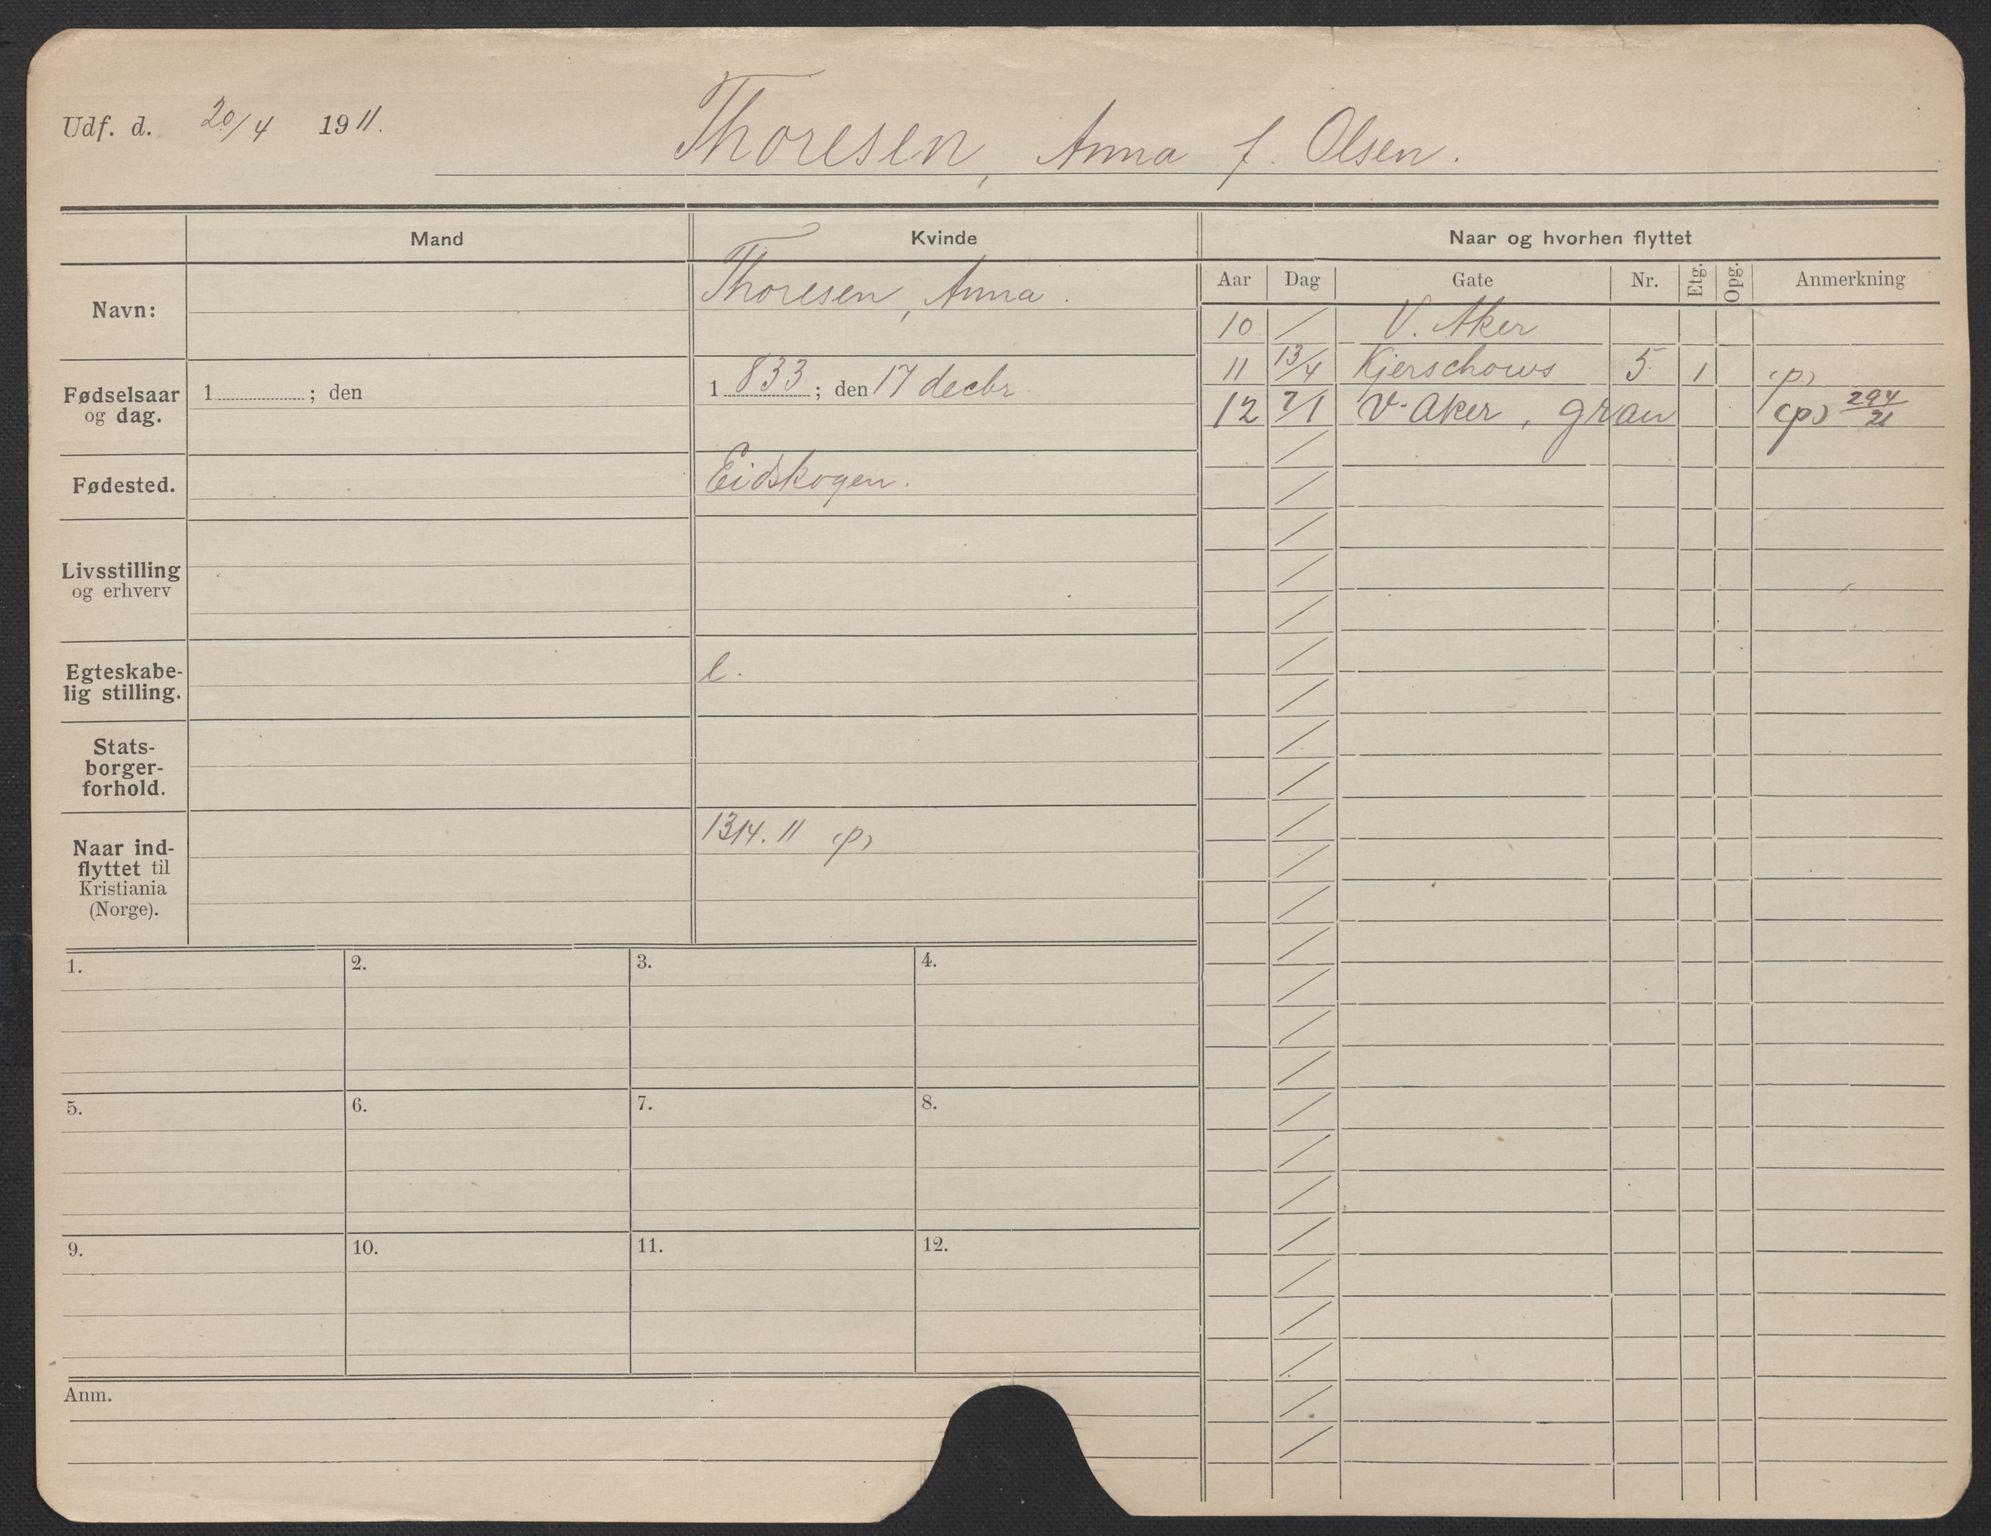 Udf. d. 20/4 1911.
Thoresen, Anna f. Olsen.
Mand
Kvinde
Naar og hvorhen flyttet
Aar Dag Gate Nr. Etg. Opg. Anmerkning
Navn:
Thoresen, Anna.
Fødselsaar
og dag.
1 ; den
1833; den 17 decbr.
Fødested.
Eidskogen.
Livsstilling
og erhverv
Egteskabe-
lig stilling.
e.
Stats-
borger-
forhold.
Naar ind-
flyttet til
Kristiania
(Norge).
13/4. 11 (p)
10 / V. Aker
11 13/4 Kjerschows 5 1 (p)
12 7/1 V. Aker, Gran (p) 294/21
1.
2.
3.
4.
5.
6.
7.
8.
9.
10.
11.
12.
Anm.